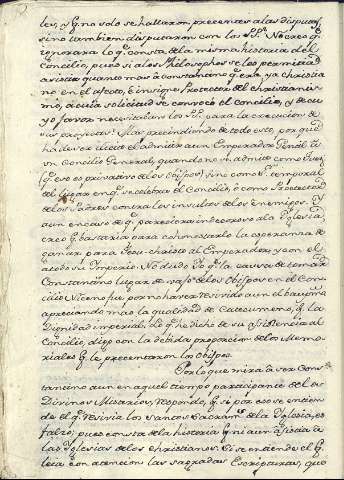 les, y q.e no solo se hallaron presentes a las disputas,
sino tambien disputaron con los S.S.P.s No creo q.e
ignorara lo q.e consta de la misma historia del
Concilio, pues si a los Philosophos se les permitia
asistir quanto mas a Constantino q.e era ya christia
no en el afecto, e insigne Protector del christianis
mo, a cuia solicitud se convocó el Concilio, y de cu
yo favor necesitaban los P.P. para la execucion de
sus proyectos! Mas prescindiendo de todo esto, por qué
ha de ser ilicito el admitir a un Emperador Gentil a
un Concilio General, quando no se admite como Juez
(q.e eso es privativo de los Obispos) sino como S.or temporal
del lugar en q.e se celebra el Concilio, o como Protector
de los Padres contra los insultos de los Enemigos. Y
aun en caso de q.e pareciera indecoroso a la Iglesia,
creo q.e bastaria para cohonestarlo la esperanza de
ganar para Jesu-christo al Emperador, y con el
a todo su Imperio. No dudo Yo q.e la causa de tomar
Constantino lugar de vajo de los Obispos en el Con
cilio Niceno fue por no haver recivido aun el bautismo
apreciando mas la qualidad de Catecumeno, q.e la
Dignidad imperial. Lo q.e he dicho de su asistencia al
Concilio, digo con la debida proporcion de los Memo
riales q.e le presentaron los Obispos.
Por lo que mira a ser Cons
tantino aun en aquel tiempo participante de los
Divinos Misterios, respondo, q.e si por eso se entien
de el q.e recivia los Santos Sacram.tos de la Iglesia, es
falso; pues consta de la historia q.e ni aun asistia a
las Iglesias de los Christianos. Si se entiende el q.e
leia con atencion las sagradas Escripturas, que